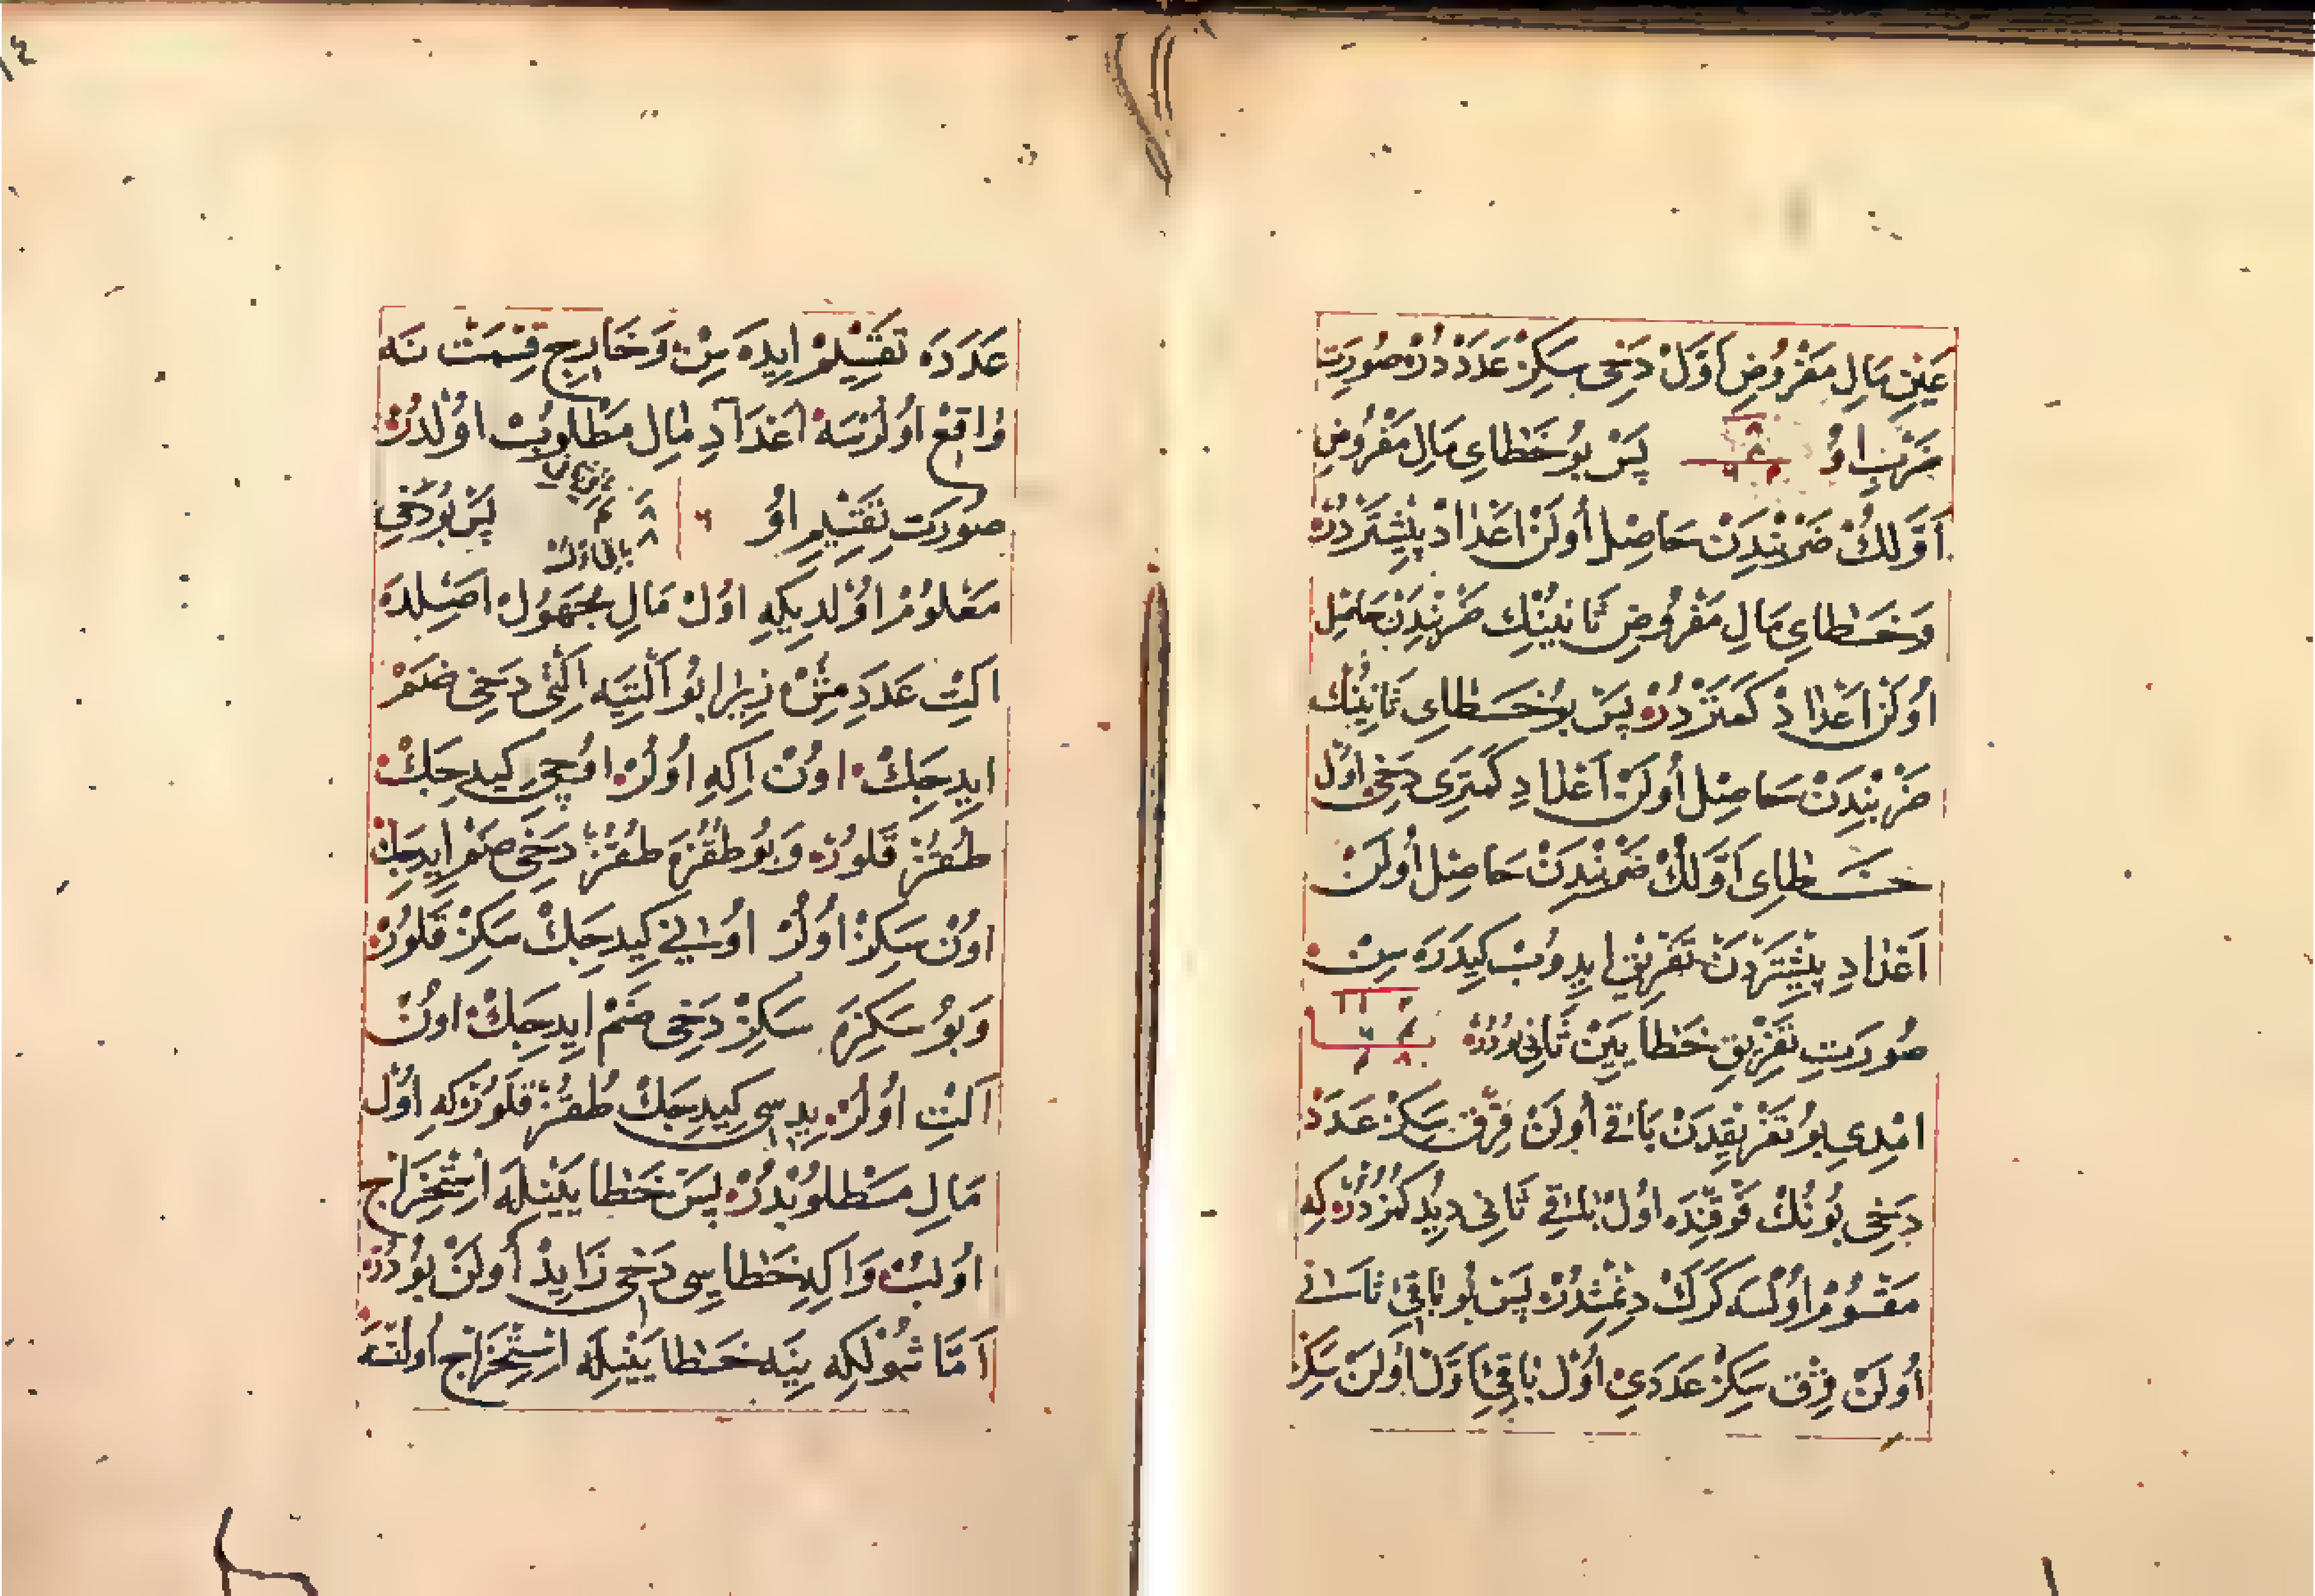 عَيْنِ مَالِ مَفْرُوضِ اَوَّلْ دَخِى سَكِزْ عَدَدْ دُرْ صُورَتِ
ضَرْبِ اوُ پَسْ بُو خَطَاىِ مَالِ مَفْرُوضِ
اَوَّلِكْ ضَرْبِنْدَنْ حَاصِلْ اُولَنْ اَعْدَادْ بِيشْتَرْ دُرْ
وَخَطَاىِ مَالِ مَفْرُوضِ ثَانِينُكْ ضَرْبِنْدَنْ حَاصِلْ
اُولَنْ اَعْدَادْ كَمْتَرْ دُرْ پَسْ بُو خَطَاىِ ثَانِينُكْ
ضَرْبِنْدَنْ حَاصِلْ اُولَنْ اَعْدَادِ كَمْتَرِى دَخِى اوُلْ
خَطَاىِ اَوَّلِكْ ضَرْبِنْدَنْ حَاصِلْ اُولَنْ
اَعْدَادِ بِيشْتَرْدَنْ تَفْرِيقْ ايدُوبْ كِيدَرَهْ سِنْ
صُورَتِ تَفْرِيقِ خَطَايَيْنِ ثَانِى بُودُرْ
امْدِى بُو تَفْرِيقْدَنْ بَاقِى اُولَنْ قِرْقْ سَكِزْ عَدَدْ
دَخِى بُونُكْ فَوْقِنْدَه اوُلْ بَاقِئ ثَانِى دِيدُكُمُزْدُرْ كِه
مَقْسُومْ اوُلْسَه كَرَكْ دِمِشْدُرْ پَسْ بُو بَاقِئ ثَانِى
اُولَنْ قِرْقْ سَكِزْ عَدَدِى اوُلْ بَاقِئ اَوَّلْ اُولَنْ سَكِزْ
عَدَدَه تَقْسِيمْ ايدَه سِنْ وَخَارِجِ قِسْمَتْ نَه
وَاقِعْ اوُلُرْسَه اَعْدَادِ مَالِ مَطْلُوبْ اوُلْدُرْ
صُورَتِ تَقْسِيمِ اوُ ٦ پَسْ بُو دَخِى
مَعْلُومْ اوُلْدِيكِه اوُلْ مَالِ مَجْهُولْ اَصْلِدَه
اَلْتِى عَدَدِمِشْ زِيرَا بُو اَلْتِيَه اَلْتِى دَخِى ضَمْ
ايدِجَكْ اوُنْ اِكِه اوُلُرْ اوُچِى كِيدِجَكْ
طُقُزْ قَلُورْ وَبُو طُقُزَه طُقُزْ دَخِى ضَمْ ايدِجَكْ
اوُنْ سَكِزْ اوُلُرْ اوُنِى كِيدِجَكْ سَكِزْ قَلُورْ
وَبُو سَكِزَه سَكِزْ دَخِى ضَمْ ايدِجَكْ اوُنْ
اَلْتِى اوُلُرْ يدِسِى كِيدِجَكْ طُقُزْ قَلُورْ كِه اوُلْ
مَالِ مَطْلُوبْدُرْ پَسْ خَطَايَيْنِلَه اِسْتِخْرَاجْ
اوُلُبْ وَاكِه خَطَاسِى دَخِى زَايِدْ اُولَنْ بُودُرْ
اَمَّا شُولْكِه يِنَه خَطَايَيْنِلَه اِسْتِخْرَاجْ اُولُنَه